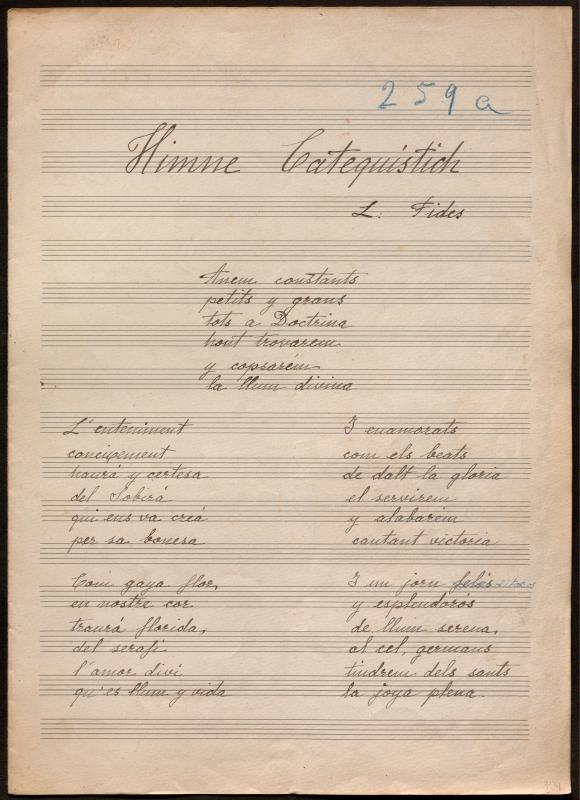 259a
Himne Catequistich
L. Fides
Anem constants
petits y grans
tots a Doctrina
hont trovarem
y copsarem
la llum divina
L'enteniment
coneixement
haurá y certesa
del Sobirá
qui ens va creá
per sa bonesa
Com gaya flor,
en nostre cor
traurá florida,
del serafí
l'amor diví
qu'es llum y vida
I enamorats
com els beats
de dalt la gloria
el servirem
y alabarem
cantant victoria
I un jorn felis
y esplendorós
de llum serena,
al cel, germans
tindrem dels sants
la joya plena.